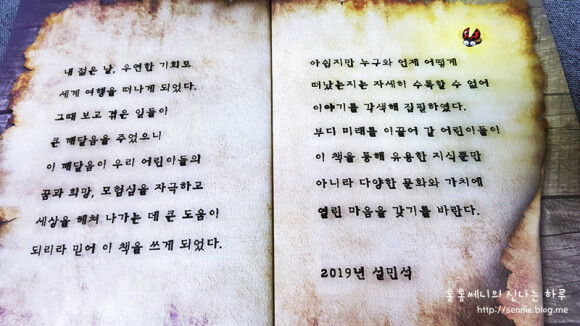 내 젊은 날, 우연한 기회로
세계 여행을 떠나게 되었다.
그때 보고 겪은 일들이
큰 깨달음을 주었으니
이 깨달음이 우리 어린이들의
꿈과 희망, 모험심을 자극하고
세상을 헤쳐 나가는 데 큰 도움이
되리라 믿어 이 책을 쓰게 되었다.
아쉽지만 누구와 언제 어떻게
떠났는지는 자세히 수록할 수 없어
이야기를 각색해 집필하였다.
부디 미래를 이끌어 갈 어린이들이
이 책을 통해 유용한 지식뿐만
아니라 다양한 문화와 가치에
열린 마음을 갖기를 바란다.
2019년 설민석
통통쎄니의 신나는 하루
http://sennie.blog.me